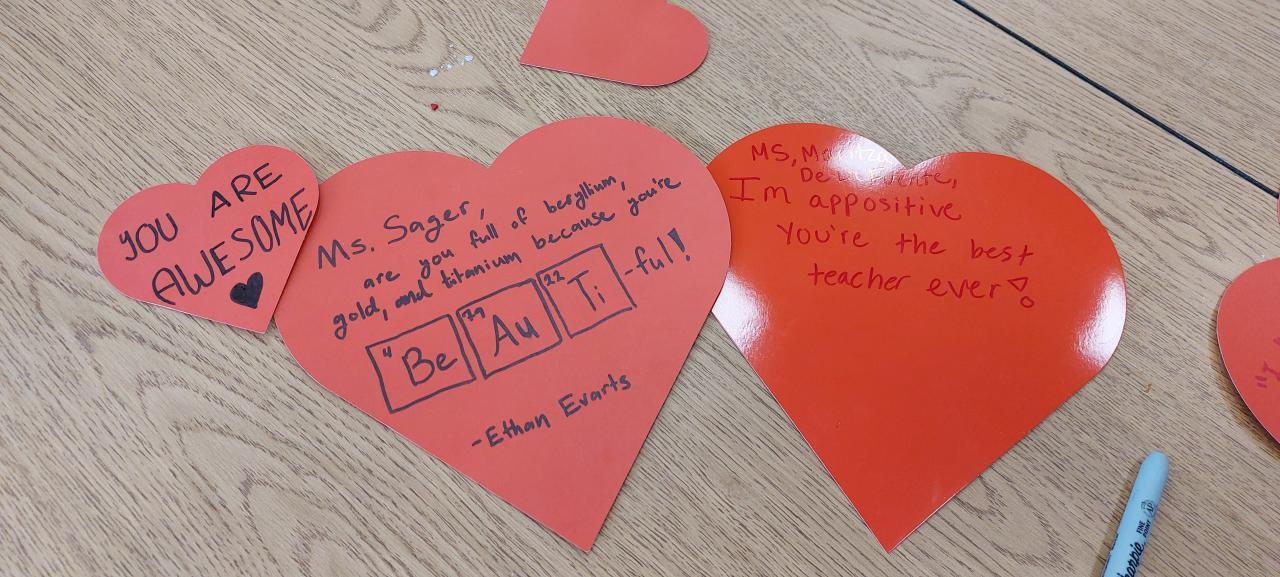 YOU ARE
AWESOME
Ms. Sager,
are you full of beryllium,
gold, and titanium because you're
4 Be 79 Au 22 Ti -ful!
-Ethan Evarts
MS, Maritza
De
I'm appositive
You're the best
teacher ever!
FINE
Sharpie